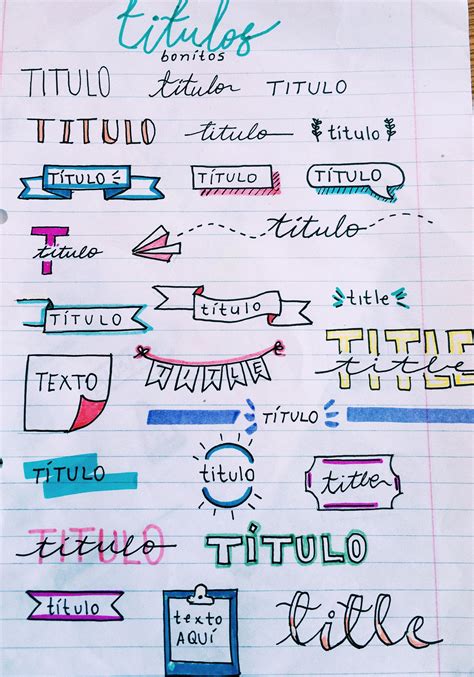 títulos
bonitos
TITULO títulor TITULO
TITULO título título
TÍTULO TÍTULO TÍTULO
T título título
TÍTULO título title
TITLE title
TEXTO TITLE
TÍTULO
TÍTULO titulo title
TITULO título TÍTULO
título texto title
AQUÍ